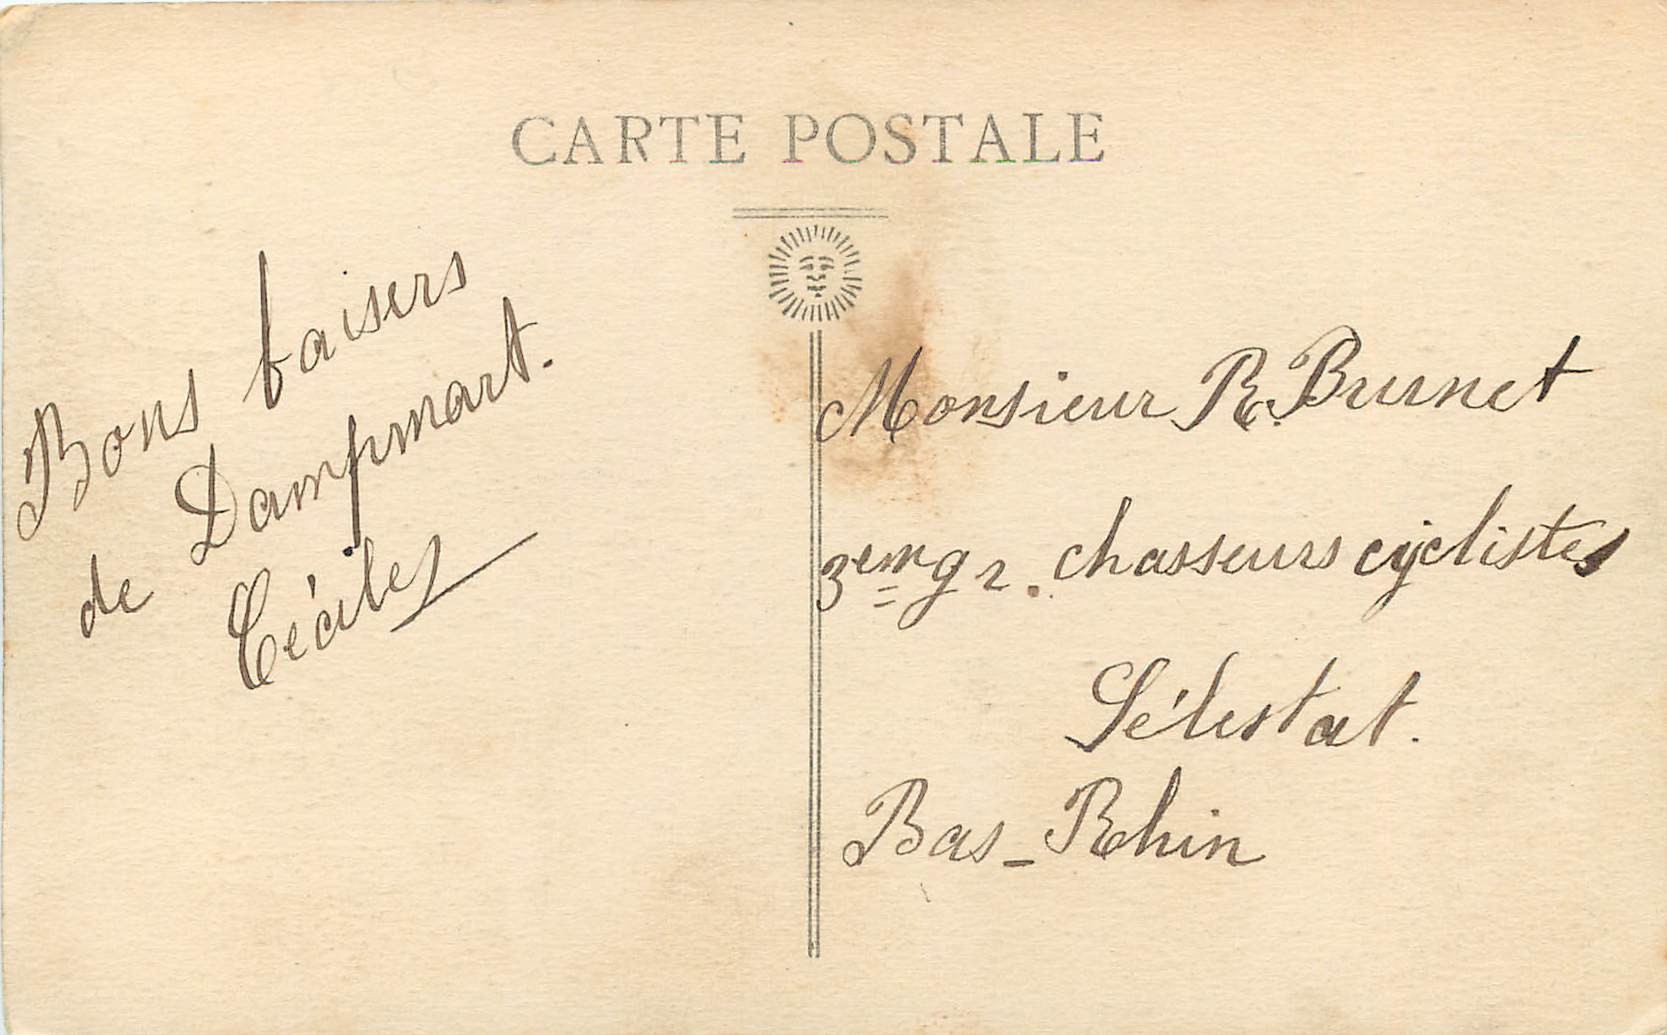 CARTE POSTALE
Bons baisers
de Dampmart.
Cécile
Monsieur R. Brunet
3em gr. chasseurs cyclistes
Sélestat.
Bas-Rhin